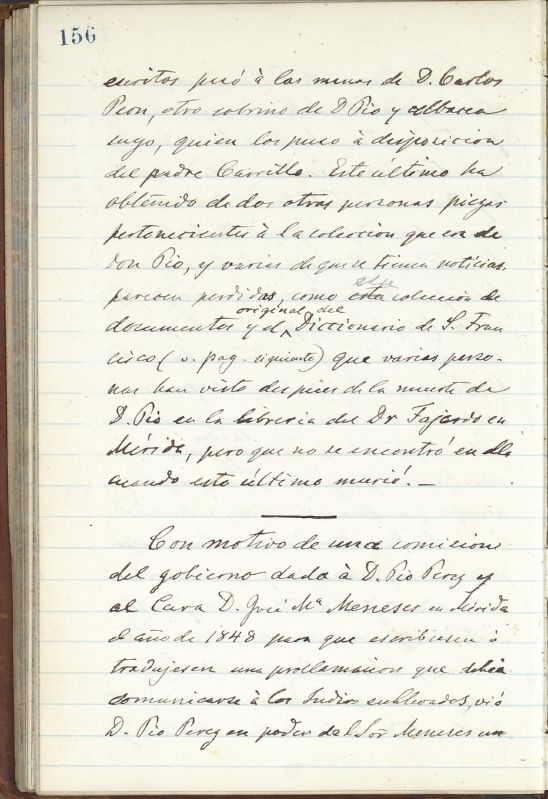 156
escritos pasó à las manos de D. Carlos
Peon, otro sobrino de D Pio y albacea
suyo, quien los puso à disposicion
del padre Carrillo. Este último ha
obtenido de dos otras personas piezas
pertenecientes à la coleccion que era de
don Pio, y varias de que se tienen noticias,
parecen perdidas, como esta coleccion de
documentos y el original del Diccionario de S. Fran
cisco (v. pag. siguiente) que varias perso-
nas han visto despues de la muerte de
D. Pio en la libreria del Dr Fajardo en
Mérida, pero que no se encontró en ella
cuando este último murió. —
Con motivo de una comision
del gobierno dada à D. Pio Perez y
al Cura D. José Mª Meneses en Mérida
el año de 1848 para que escribiesen ó
tradujesen una proclamacion que debia
comunicarse à los Indios sublevados, vió
D. Pio Perez en poder del Sor Meneses un